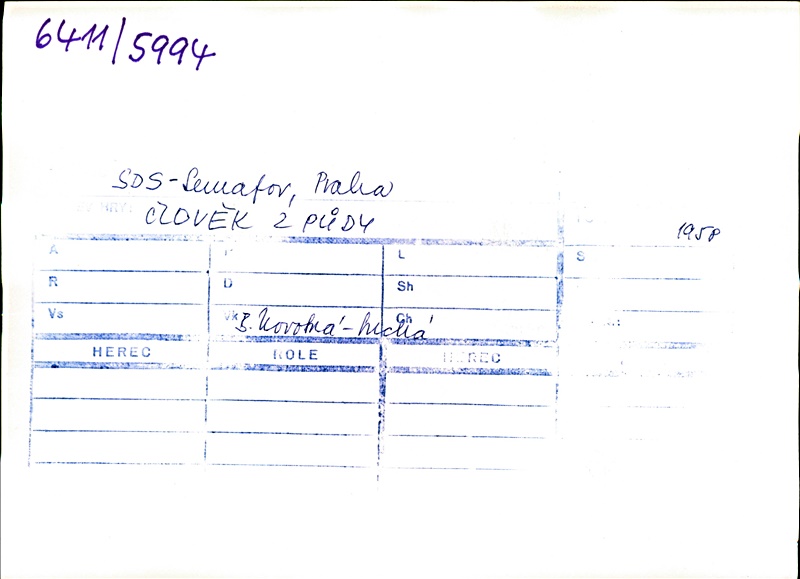 6411/5994
SDS-Semafor, Praha
ČLOVĚK Z PŮDY
1958
A L S
R D Sh
Vs Vk B. Novotná- Ch
HEREC ROLE HEREC